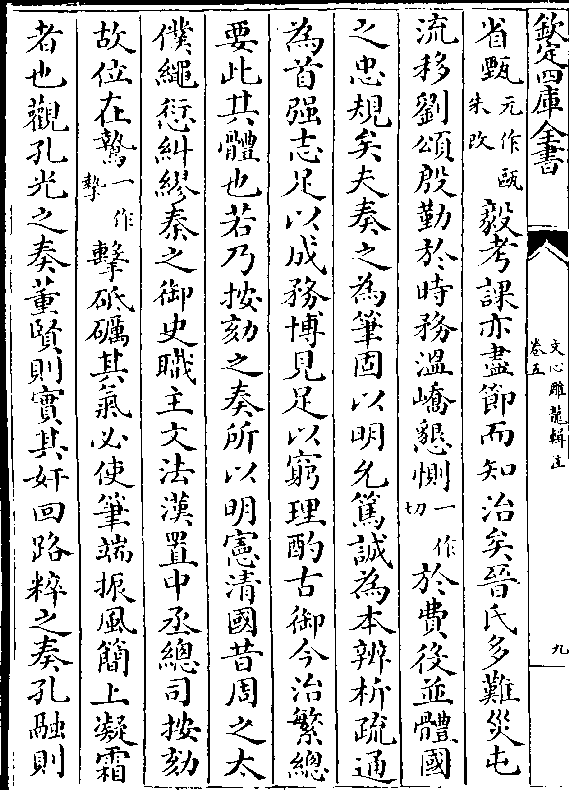 欽定四庫全書
文心雕龍輯注
卷五
九
省甄元作甌朱改毅考課亦盡節而知治矣晉氏多難災屯
流移劉頌殷勤於時務溫嶠懇惻一作切於費役並體國
之忠規矣夫奏之為筆固以明允篤誠為本辨析疏通
為首强志足以成務博見足以窮理酌古御今治繁總
要此其體也若乃按劾之奏所以明憲清國昔周之太
僕繩愆糾繆秦之御史職主文法漢置中丞總司按劾
故位在鷙一作摯擊砥礪其氣必使筆端振風簡上凝霜
者也觀孔光之奏董賢則實其奸回路粹之奏孔融則